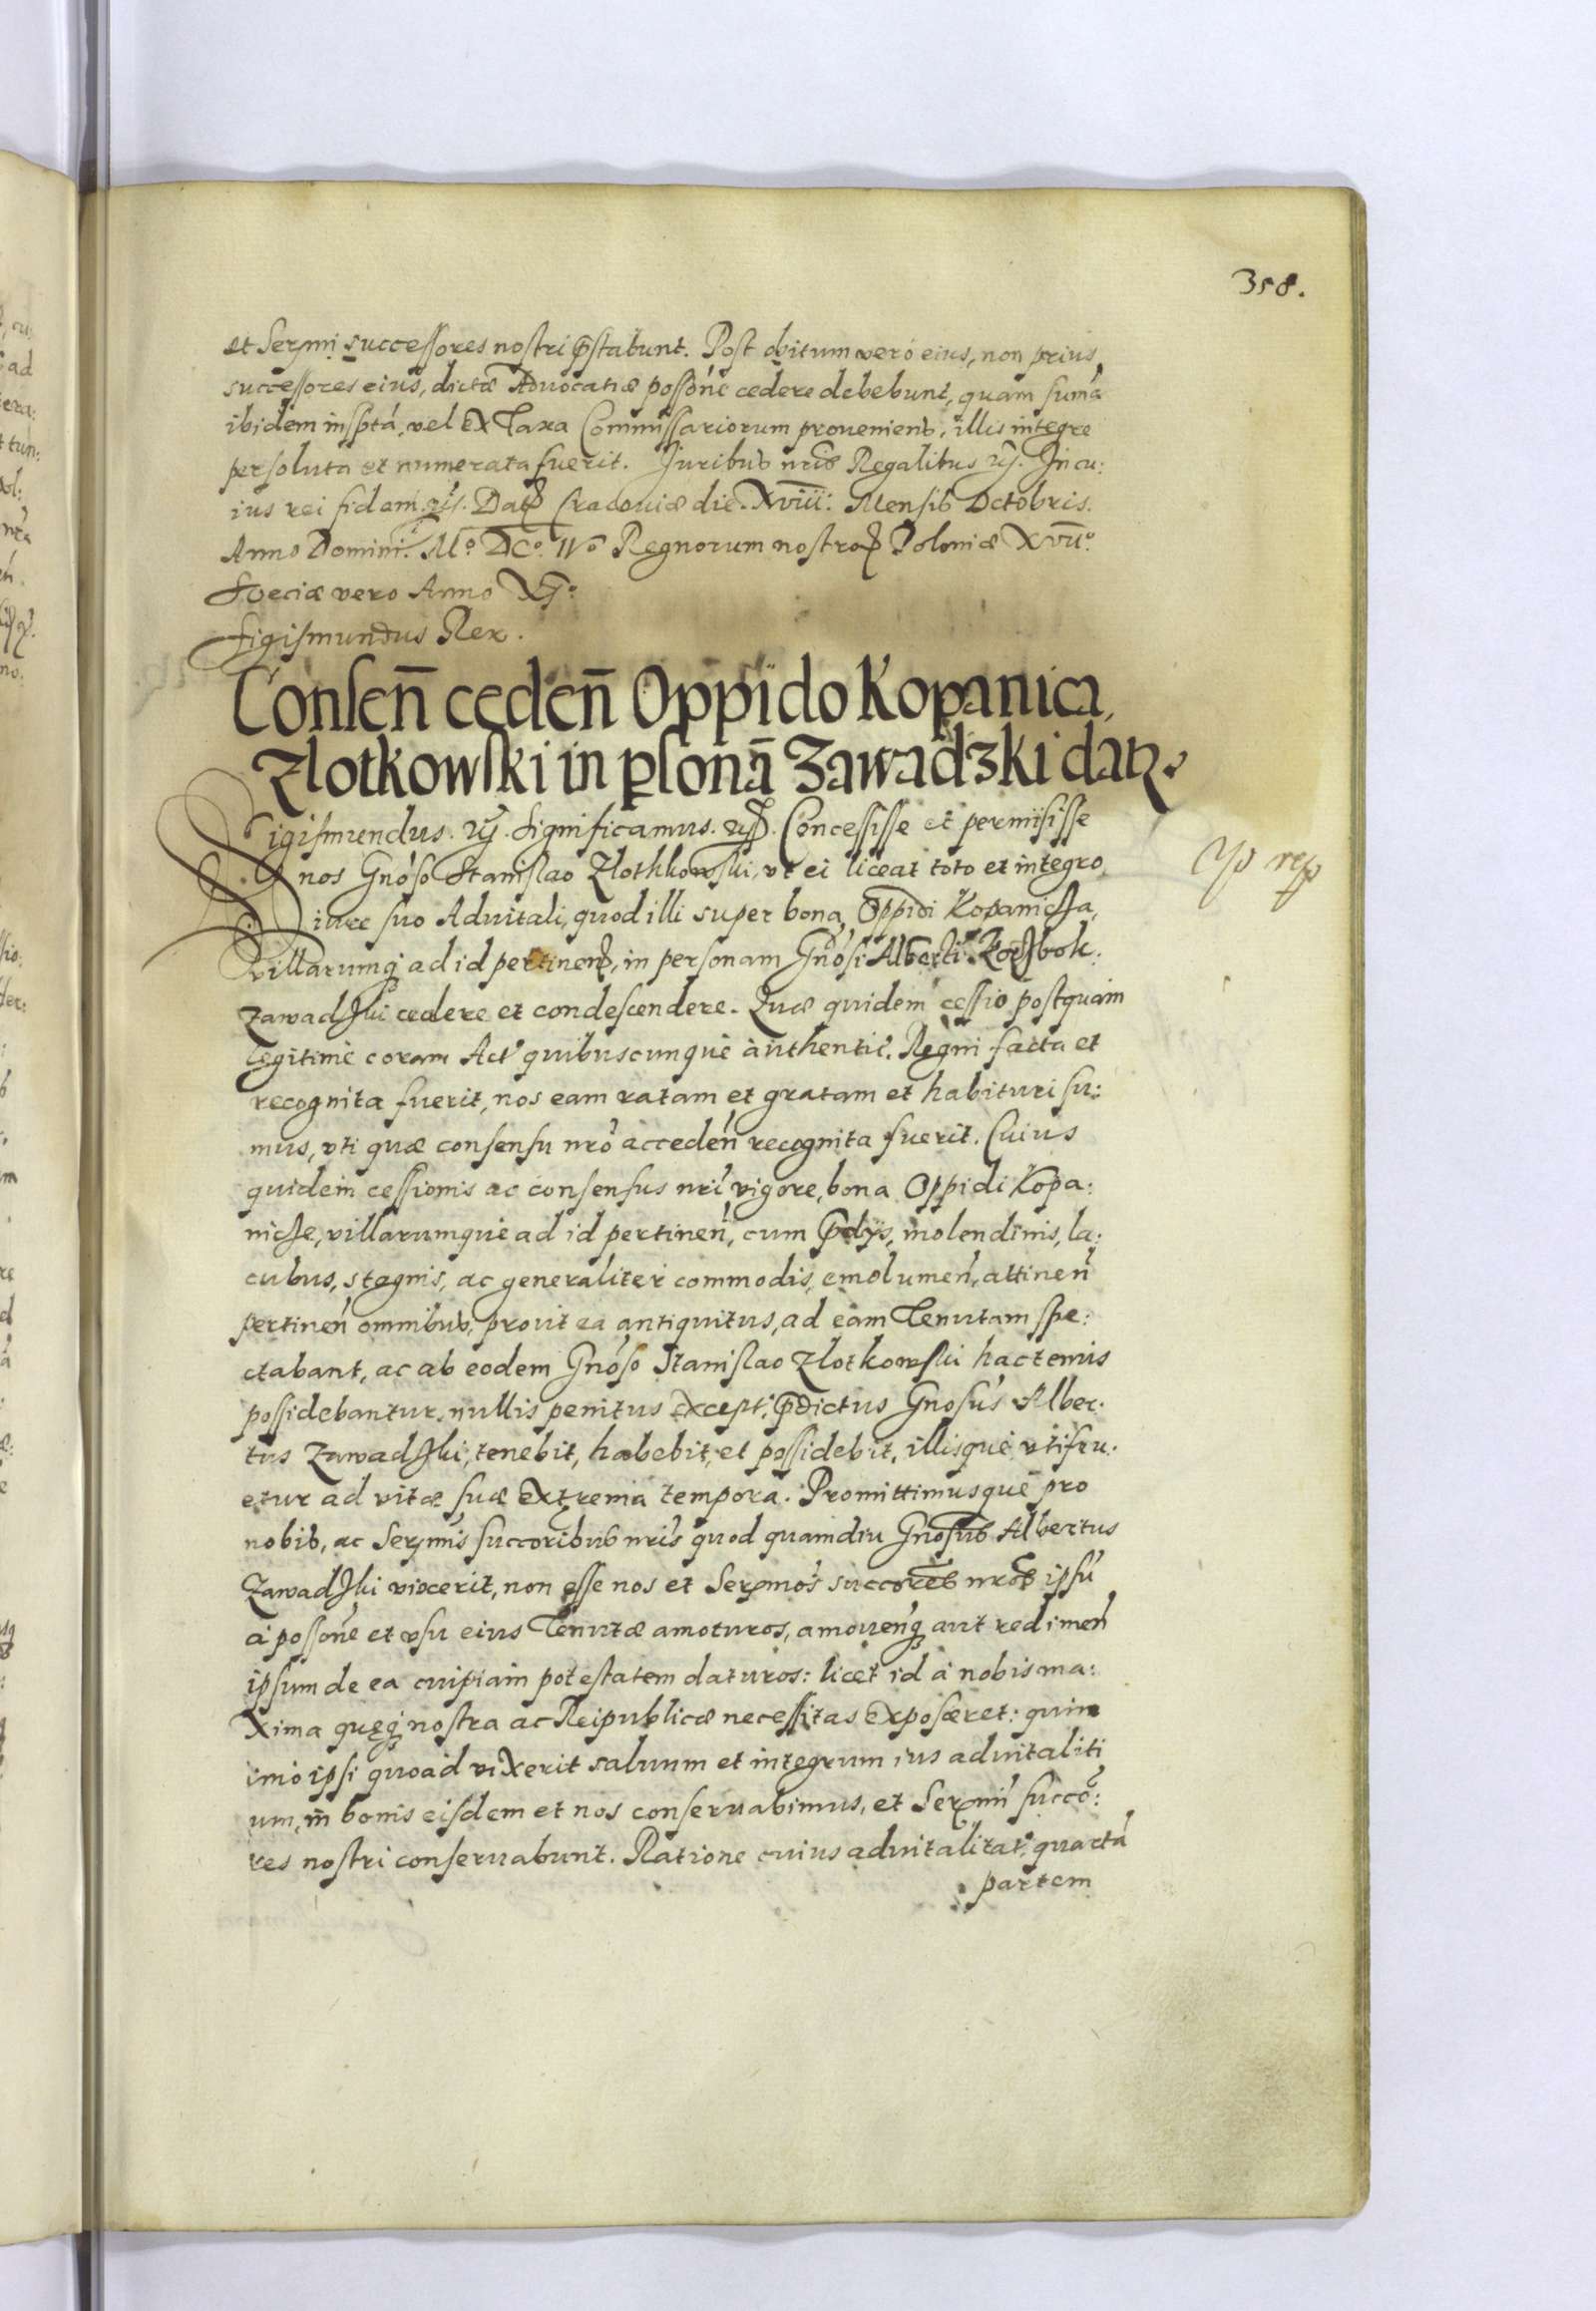 358.
et Serꝫmi successores nostri p̄stabunt. Post obitum vero eius, non prius,
successores eius, dictæ Advocatiæ possōne cedere debebunt, quam sum̄a
ibidem insp̄tā, vel ex Taxa Commissariorum proueniens, illis integre
persoluta et numerata fuerit. Juribus nr̄is Regalibus ꝛc̄. In cu:
ius rei fidem ꝛc̄. Datꝫ Cracoviæ die. XVIII: Mensis Octobris.
Anno Domini. Mº. DCº. IVº Regnorum nostroꝝ Poloniæ XVIIº.
Sueciæ vero Anno XIº.
Sigismundus Rex.
Consen̄ ceden̄ Oppido Kopanica,
Zlotkowski in ꝑsonā Zawadzki datꝫ.
Sigismundus. ꝛc̄. Significamus. ꝛc̄. Concessisse et permisisse
nos Gnōso Stanislao Zlothkowski, vt ei liceat toto et integro
iure suo Aduitali, quod illi super bona Oppidi Kopanicza,
Villarumqꝫ ad id pertinenꝫ, in personam Gnōsi Alberti
Zawadzki cedere et condescendere. Quæ quidem cessio postquam
legitime coram Act' quibuscunque authentic'. Regni facta et
recognita fuerit, nos eam ratam et gratam et habituri su:
mus, vti quæ consensu nr̄o acceden̄ recognita fuerit. Cuius
quidem cessionis ac consensus nr̄i vigore, bona Oppidi Kopa:
nicze, villarumque ad id pertinen̄, cum p̄dijs, molendinis, la:
cubus, stagnis, ac generaliter commodis, emolumen̄, attinen̄
pertinen̄ omnibus, prout ea antiquitus, ad eam Tenutam spe:
ctabant, ac ab eodem Gnōso Stanislao Zlotkowski hactenus
possidebantur, nullis penitus except', p̄dictus Gnosus Alber.
tus Zawadzki, tenebit, habebit, et possidebit, illisque vtifru.
etur ad vitæ suæ extrema tempora. Promittimusque pro
nobis, ac Serꝫmis succoribus nr̄is quod quamdiu Gnōsus Albertus
Zawadzki vixerit, non esse nos et Serꝫmos succores nr̄os ipsū
a possōne et vsu eius Tenutæ amoturos, amouen̄qꝫ aut redimen̄
ipsum de ea cuipiam potestatem daturos: licet id a nobis ma:
xima quęqꝫ nostra ac Reipublicæ necessitas exposceret: quin
imo ipsi quoad vixerit saluum et integrum ius aduitaliti
um, in bonis eisdem et nos conseruabimus, et Serꝫmi succō:
res nostri conseruabunt. Ratione cuius aduitalitat' quartā
partem